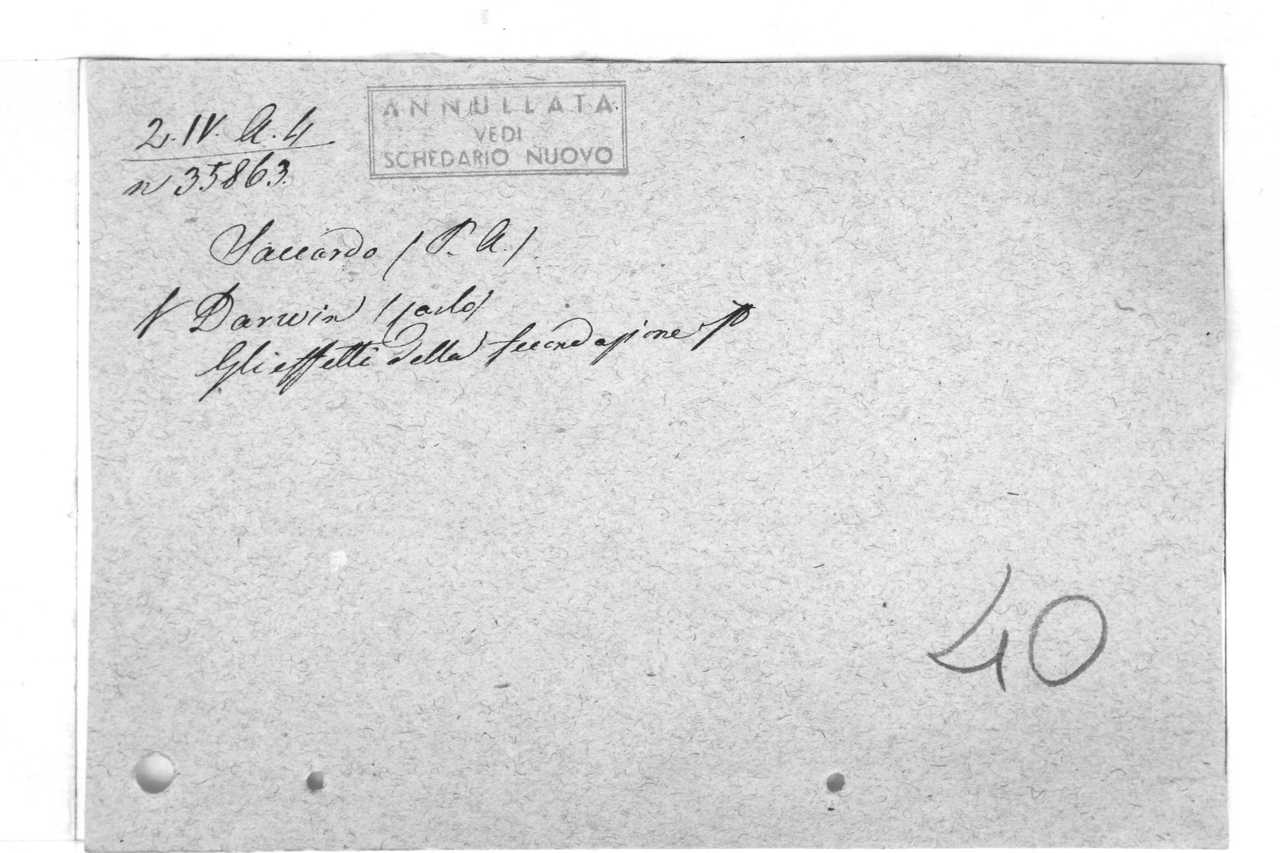 ANNULLATA
VEDI
SCHEDARIO NUOVO
2.IV. A. 4
n 35863.
Saccardo (P. A.)
V Darwin (Carlo)
Gli effetti della fecondazione
40